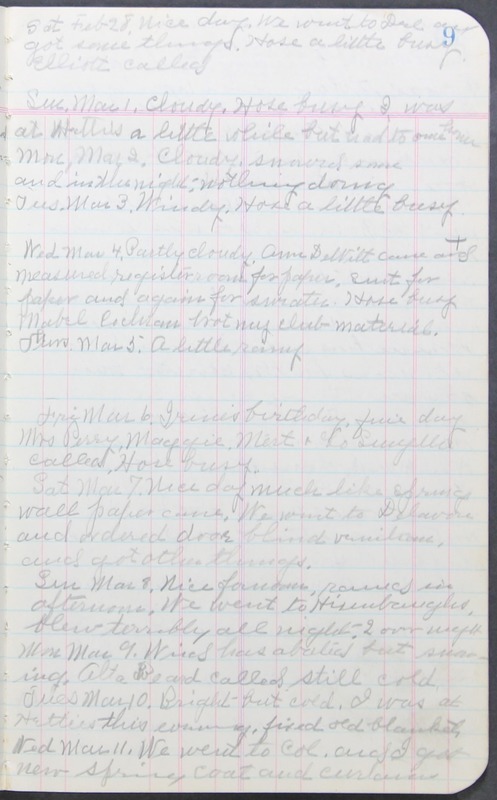 9
Sat Feb 28, Nice day, We went to Del and
got some things, Hose a little busy
Elliott called
Sun. Mar 1. Cloudy. Hose busy I was
at Hettie's a little while but had to come home
Mon. May 2. Cloudy. snowed some
and in the night; nothing doing
Tues. Mar 3. Windy. Hose a little busy
Wed Mar 4, Partly cloudy, Ann DeWitt came and
measured register room for paper. sent for
paper and again for smaller. Hose busy
Mabel Cochran brot my club material.
Thurs. Mar 5. A little rainy
Fri Mar 6. Irvin's birthday, fair day
Mrs Perry, Maggie, Mert &
called, Hose busy.
Sat Mar 7. Nice day much like spring
wall paper came, We went to Delaware
and ordered door blind
and got other things.
Sun Mar 8, Nice forenoon, rained in
afternoon, We went to
blew terribly all night.
Mon Mar 9. Wind has abated but snow-
ing. Alta Beard called, still cold
Tues Mar 10. Bright but cold. I was at
Hetties this evening. fixed old blankets
Wed Mar 11. We went to Col. and I got
new spring coat and curtains